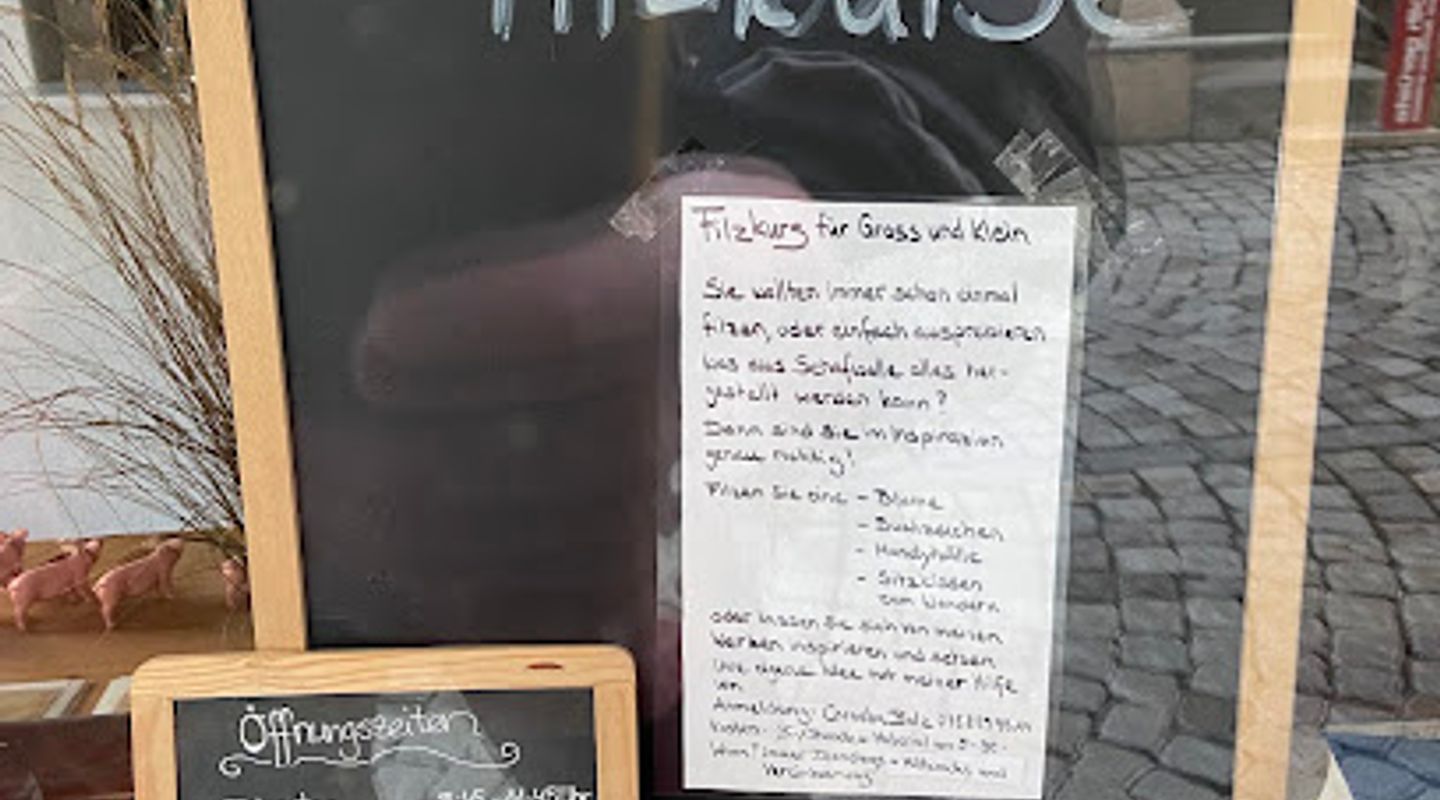 Filzkurse
Filzkurs für Gross und Klein
Sie wollten immer schon einmal
filzen, oder einfach ausprobieren
was aus Schafwolle alles her-
gestellt werden kann?
Dann sind Sie im Inspiration
genau richtig!
Filzen Sie eine - Blume
- Buchzeichen
- Handyhülle
- Sitzkissen
zum Wandern
oder lassen Sie sich von meinen
Werken inspirieren und setzen
Ihre eigene Idee mit meiner Hilfe
um.
Anmeldung:
Kosten:
Wann? Immer Dienstag + Mittwochs und
Vereinbarung
Öffnungszeiten